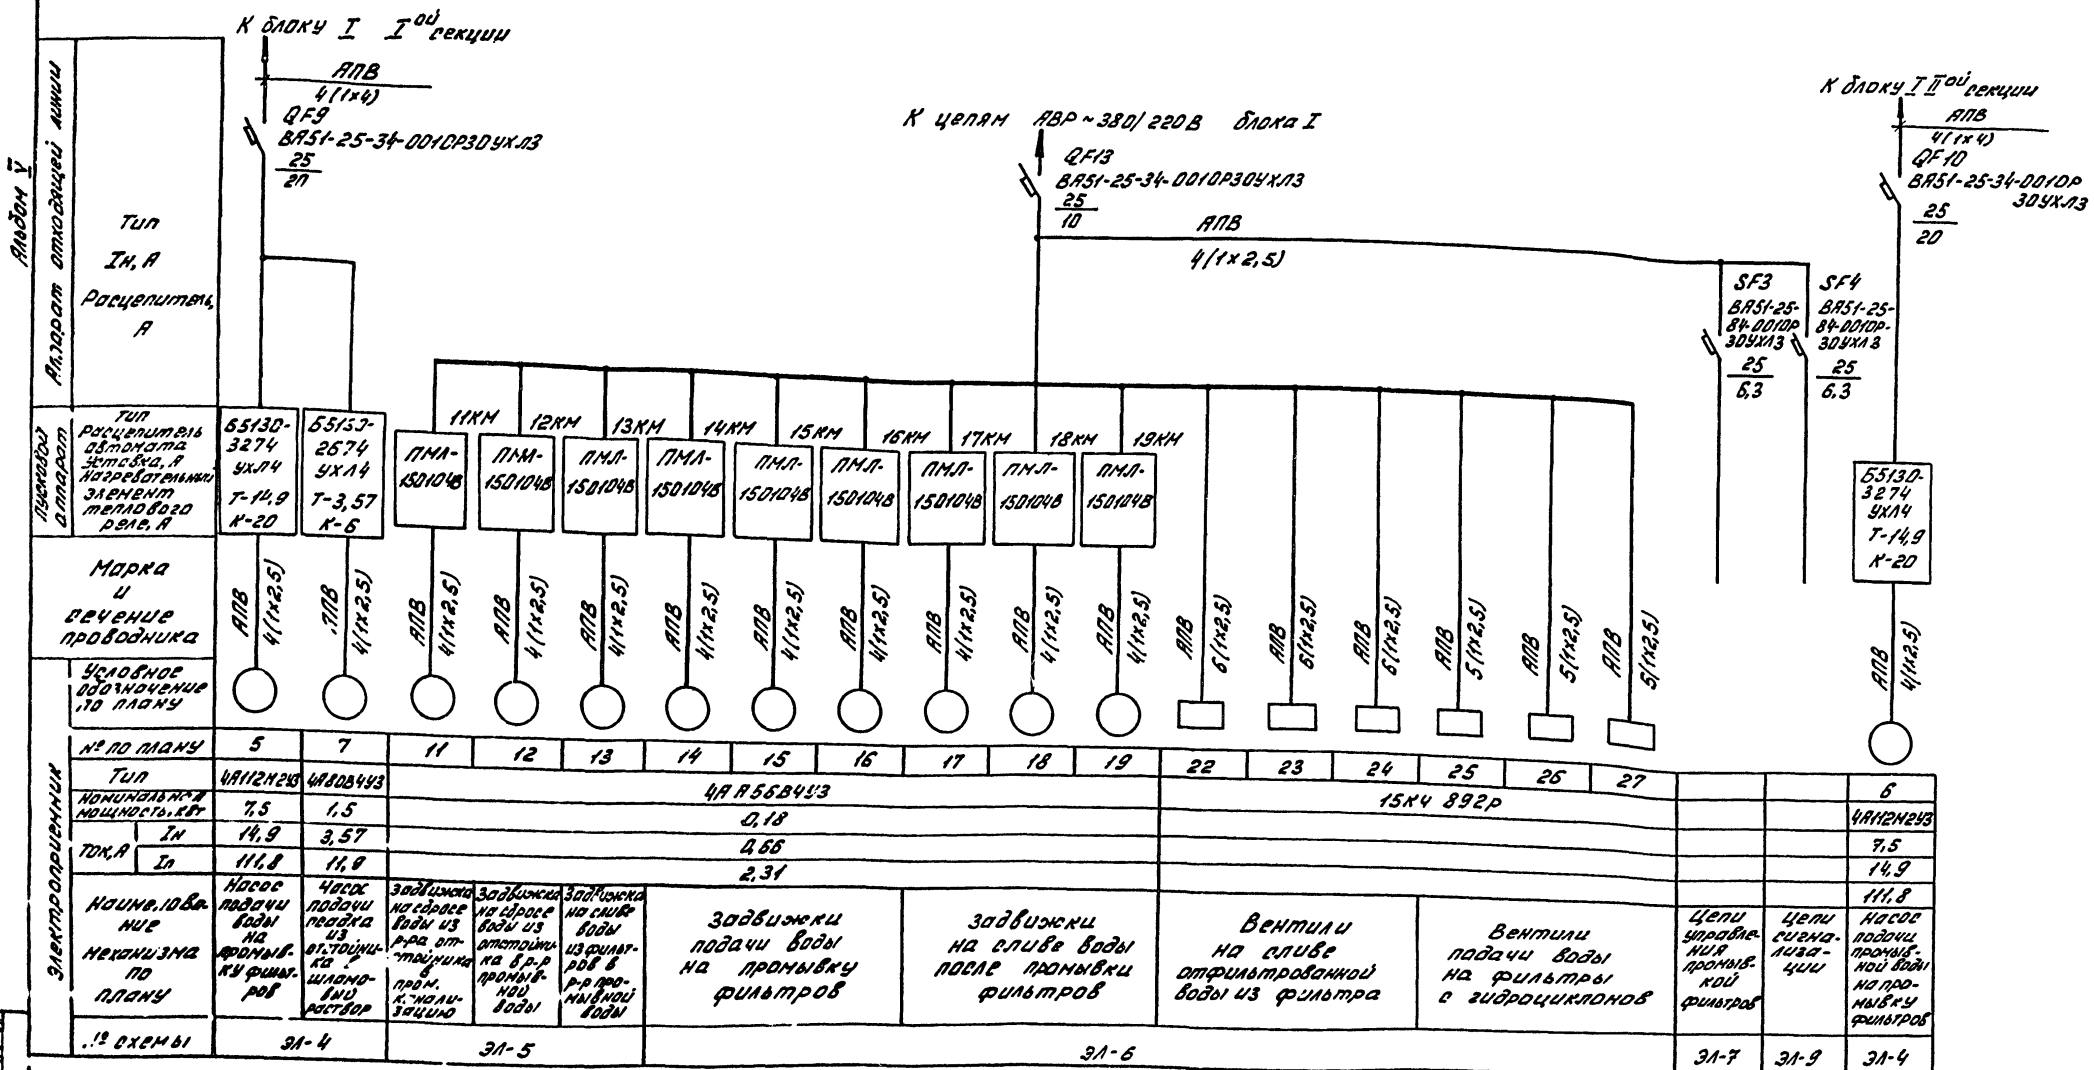 Альбом V
К блоку I I ой секции
АПВ
4(1х4)
QF9
ВА51-25-34-0010Р30УХЛ3
25
20
К цепям АВР ~380/220В блока I
QF13
ВА51-25-34-0010Р30УХЛ3
25
10
АПВ
4(1х2,5)
К блоку I II ой секции
АПВ
4(1х4)
QF10
ВА51-25-34-0010Р
30УХЛ3
25
20
SF3
ВА51-25-
84-0010Р
30УХЛ3
25
6,3
SF4
ВА51-25-
84-0010Р-
30УХЛ3
25
6,3
Аппарат отходящей линии
Тип
Iн, А
Расцепитель,
А
Пусковой
аппарат
Тип
Расцепитель
автомата
Уставка, А
Нагревательный
элемент
теплового
реле, А
Б5130-
3274
УХЛ4
Т-14,9
К-20
Б5130-
2674
УХЛ4
Т-3,57
К-6
11КМ
12КМ
13КМ
14КМ
15КМ
16КМ
17КМ
18КМ
19КМ
ПМЛ-
150104В
ПМЛ-
150104В
ПМЛ-
150104В
ПМЛ-
150104В
ПМЛ-
150104В
ПМЛ-
150104В
ПМЛ-
150104В
ПМЛ-
150104В
ПМЛ-
150104В
Б5130-
3274
УХЛ4
Т-14,9
К-20
Марка
и
сечение
проводника
АПВ
4(1х2,5)
АПВ
4(1х2,5)
АПВ
4(1х2,5)
АПВ
4(1х2,5)
АПВ
4(1х2,5)
АПВ
4(1х2,5)
АПВ
4(1х2,5)
АПВ
4(1х2,5)
АПВ
4(1х2,5)
АПВ
4(1х2,5)
АПВ
4(1х2,5)
АПВ
6(1х2,5)
АПВ
6(1х2,5)
АПВ
6(1х2,5)
АПВ
5(1х2,5)
АПВ
5(1х2,5)
АПВ
5(1х2,5)
АПВ
4(1х2,5)
Электроприемник
Условное
обозначение
по плану
№ по плану 5 7 11 12 13 14 15 16 17 18 19 22 23 24 25 26 27 6
Тип 4А112М2У3 4А80В4У3 4АА56В4У3 15кч 892р 4А112М2У3
Номинальная
мощность, кВт 7,5 1,5 0,18 7,5
Ток, А
Iн 14,9 3,57 0,66 14,9
Iп 111,8 11,9 2,31 111,8
Наименова-
ние
механизма
по
плану
Насос
подачи
воды
на
промыв-
ку фильт-
ров
Насос
подачи
осадка
из
отстойни-
ка в
шламо-
вый
раствор
Задвижка
на сбросе
воды из
р-ра от-
стойника
в
пром.
канали-
зацию
Задвижка
на сбросе
воды из
отстойни-
ка в р-р
промыв-
ной
воды
Задвижка
на сливе
воды
из фильт-
ров в
р-р про-
мывной
воды
Задвижки
подачи воды
на промывку
фильтров
Задвижки
на сливе воды
после промывки
фильтров
Вентили
на сливе
отфильтрованной
воды из фильтра
Вентили
подачи воды
на фильтры
с гидроциклонов
Цепи
управле-
ния
промыв-
кой
фильтров
Цепи
сигна-
лиза-
ции
Насос
подачи
промыв-
ной воды
на про-
мывку
фильтров
№ схемы ЭЛ-4 ЭЛ-5 ЭЛ-6 ЭЛ-7 ЭЛ-9 ЭЛ-4